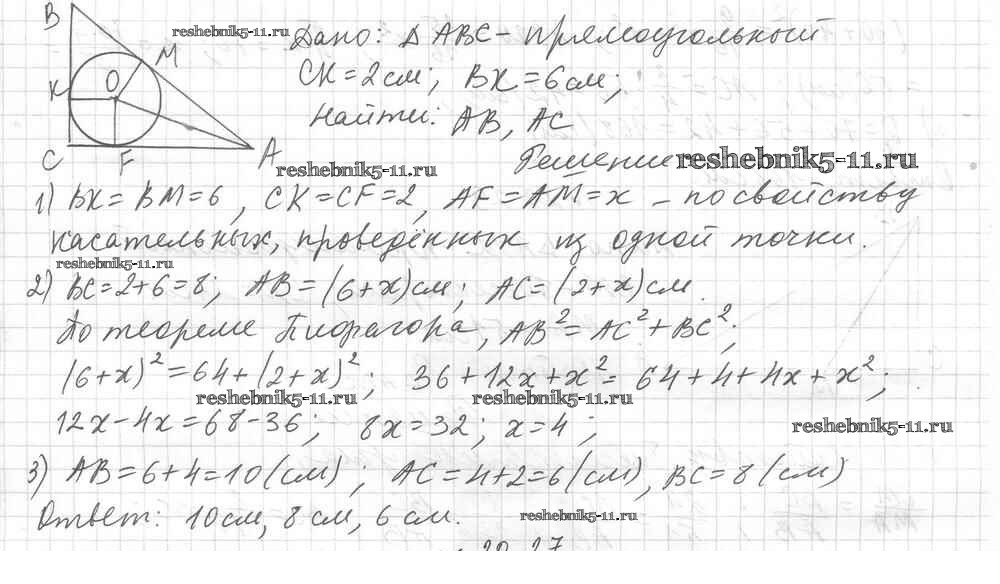 B
reshebnik5-11.ru
Дано: Δ ABC - прямоугольный
M
CK = 2 см; BK = 6 см;
O
K
Найти: AB, AC
C F A
reshebnik5-11.ru
Решение
reshebnik5-11.ru
1) BK = BM = 6, CK = CF = 2, AF = AM = x - по свойству
касательных, проведённых из одной точки.
reshebnik5-11.ru
2) BC = 2+6 = 8; AB = (6+x) см; AC = (2+x) см.
По теореме Пифагора, AB² = AC² + BC²;
(6+x)² = 64 + (2+x)²; 36 + 12x + x² = 64 + 4 + 4x + x²;
reshebnik5-11.ru
reshebnik5-11.ru
12x - 4x = 68 - 36; 8x = 32; x = 4;
reshebnik5-11.ru
3) AB = 6+4 = 10 (см); AC = 4+2 = 6 (см), BC = 8 (см)
Ответ: 10 см, 8 см, 6 см.
reshebnik5-11.ru